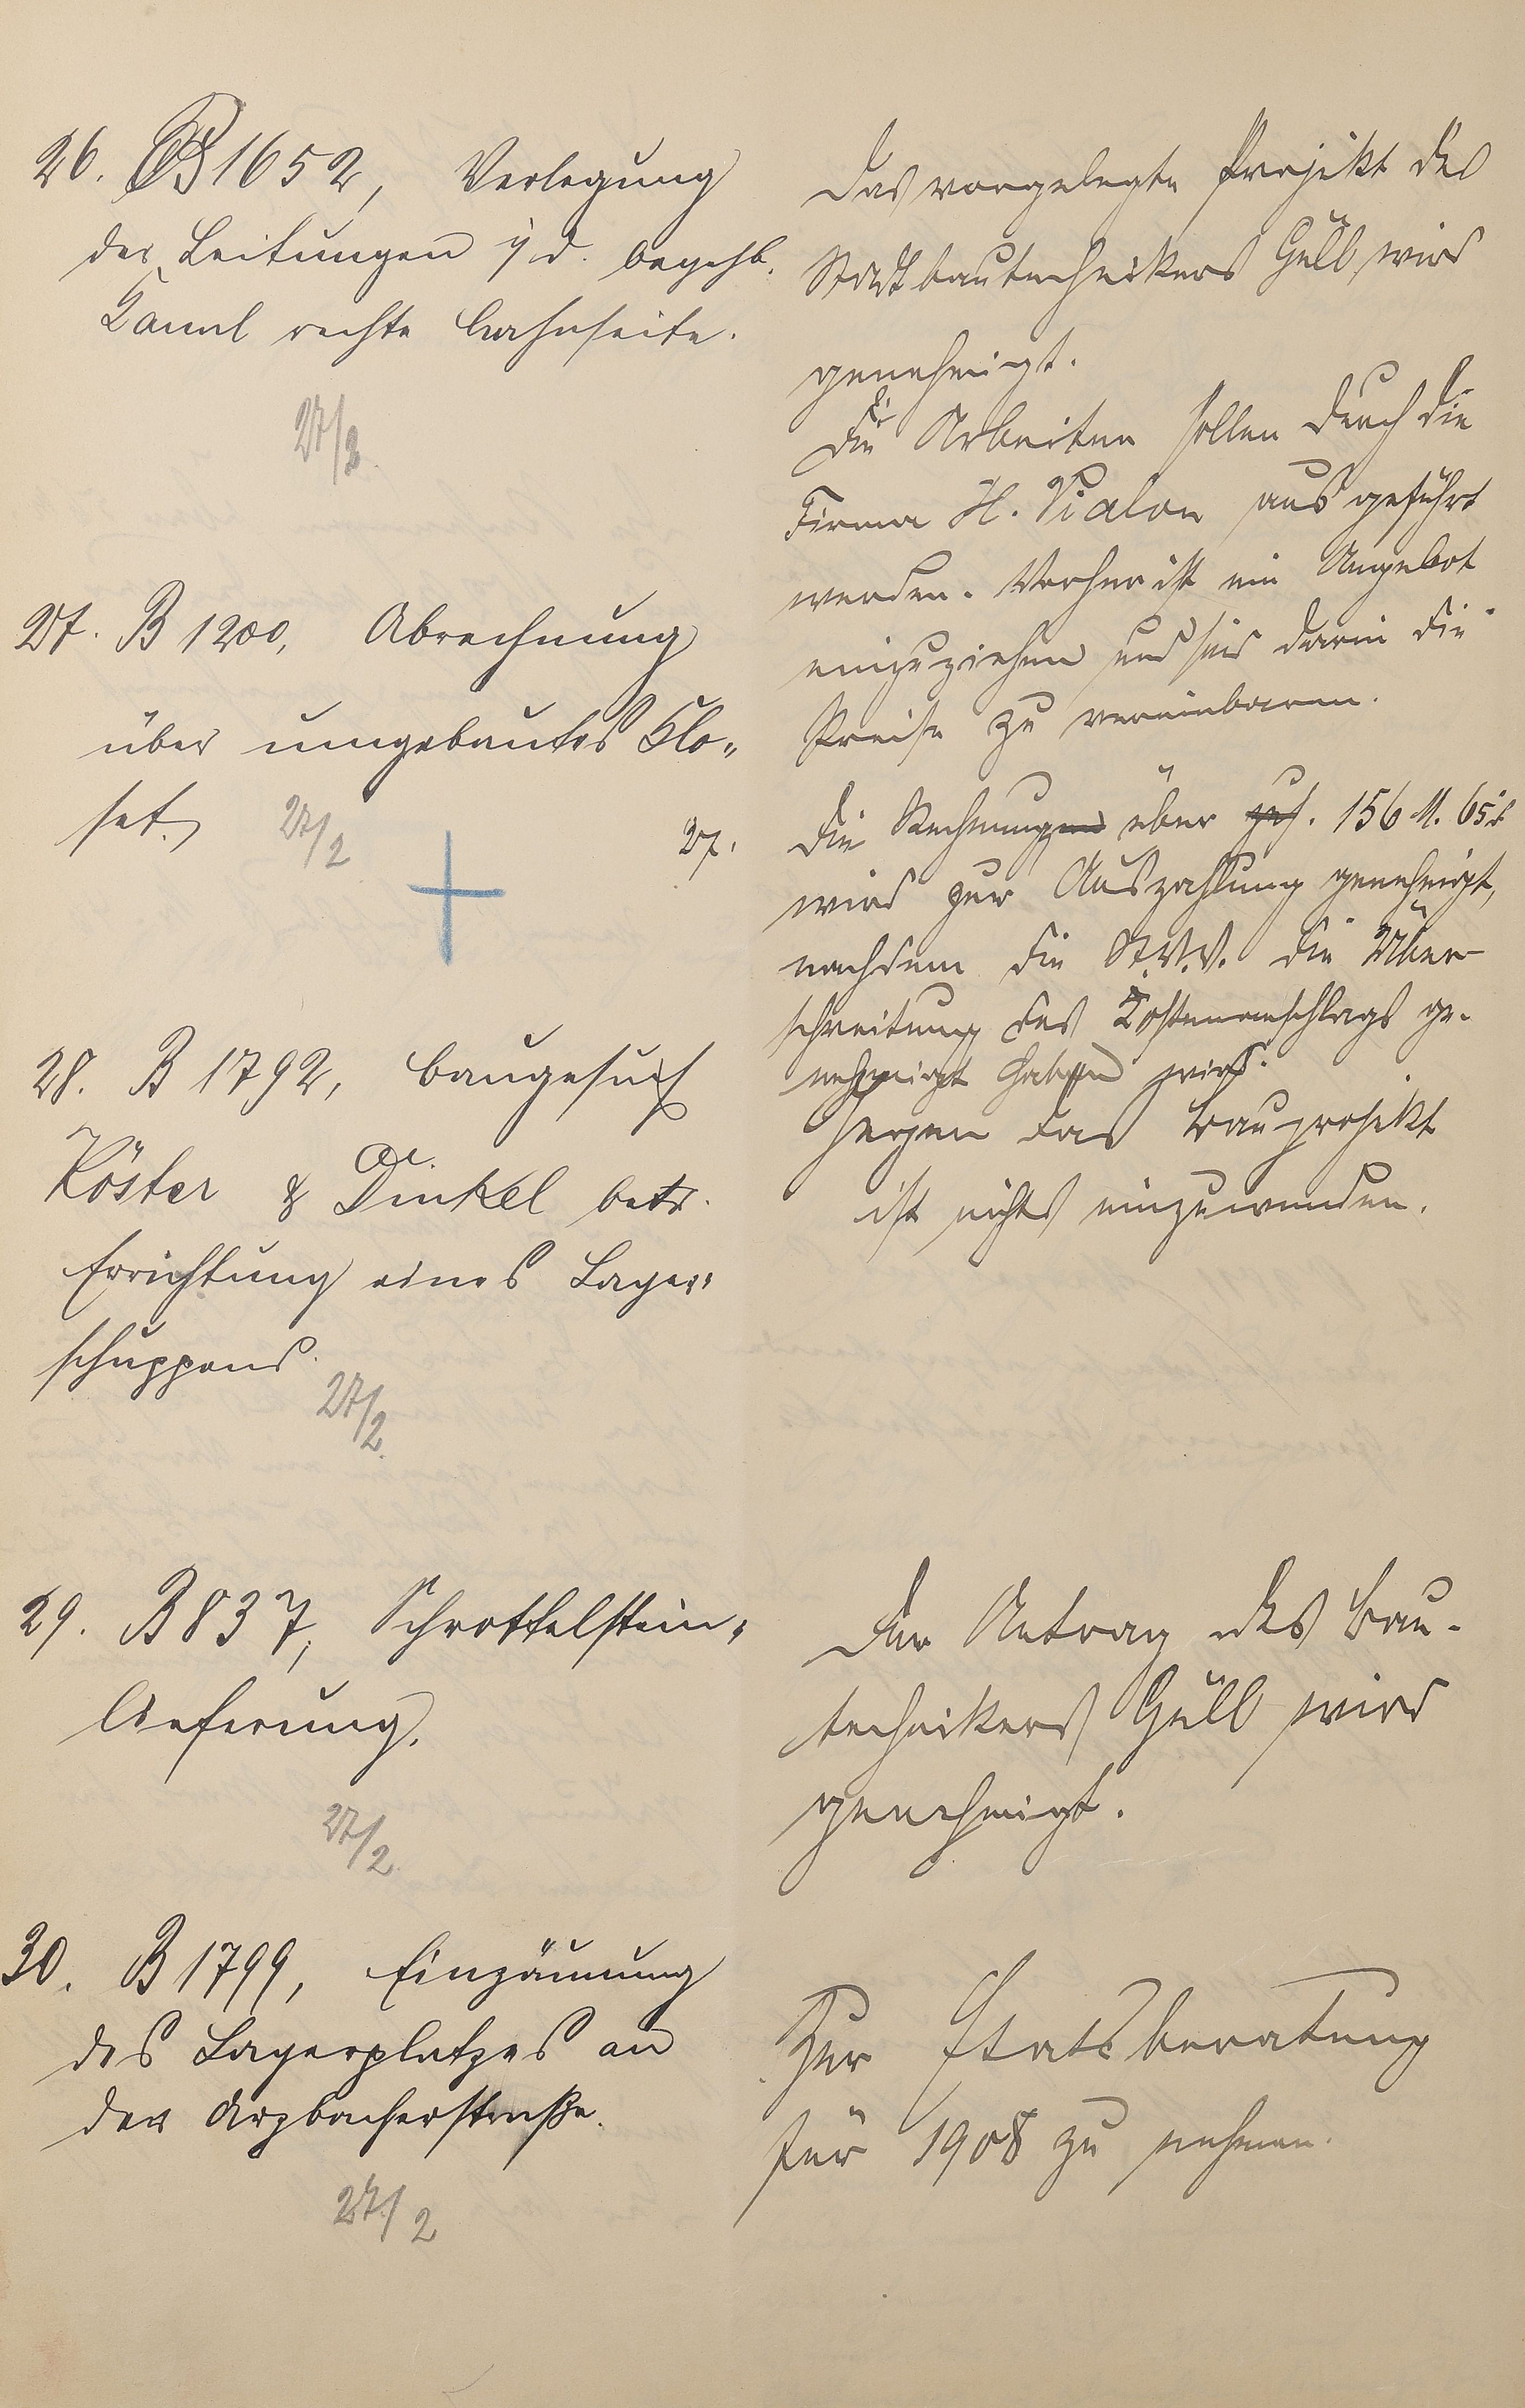 26. B 1652, Verlegung
der Leitungen i. d. begehb.
Kanal rechte Bahnseite.
27/2.
Das vorgelegte Projekt des
Stadtbautechnikers Güll wird
genehmigt.
Die Arbeiten sollen durch die
Firma H. Vialon ausgeführt
werden. Vorher ist ein Angebot
einzuziehen und sind darin die
Preise zu vereinbaren.
27. B 1200, Abrechnung
über umgebautes Klo-
set.
27/2
27. Die Rechnungen über zus. 156 M. 65 d
wird zur Auszahlung genehmigt,
nachdem die St.V.V. die Über-
schreitung des Kostenanschlags ge-
nehmigt haben wird.
28. B 1792, Baugesuch
Köster & Cie. Dinkel betr.
Errichtung eines Lager-
schuppens.
27/2.
Gegen das Bauprojekt
ist nichts einzuwenden.
29. B 837, Schrottelstein-
lieferung.
27/2.
Der Antrag des Bau-
technikers Güll wird
genehmigt.
30. B 1799, Einzäunung
des Lagerplatzes an
der Arzbacherstraße.
27/2
Zur Etatsberatung
für 1908 zu nehmen.